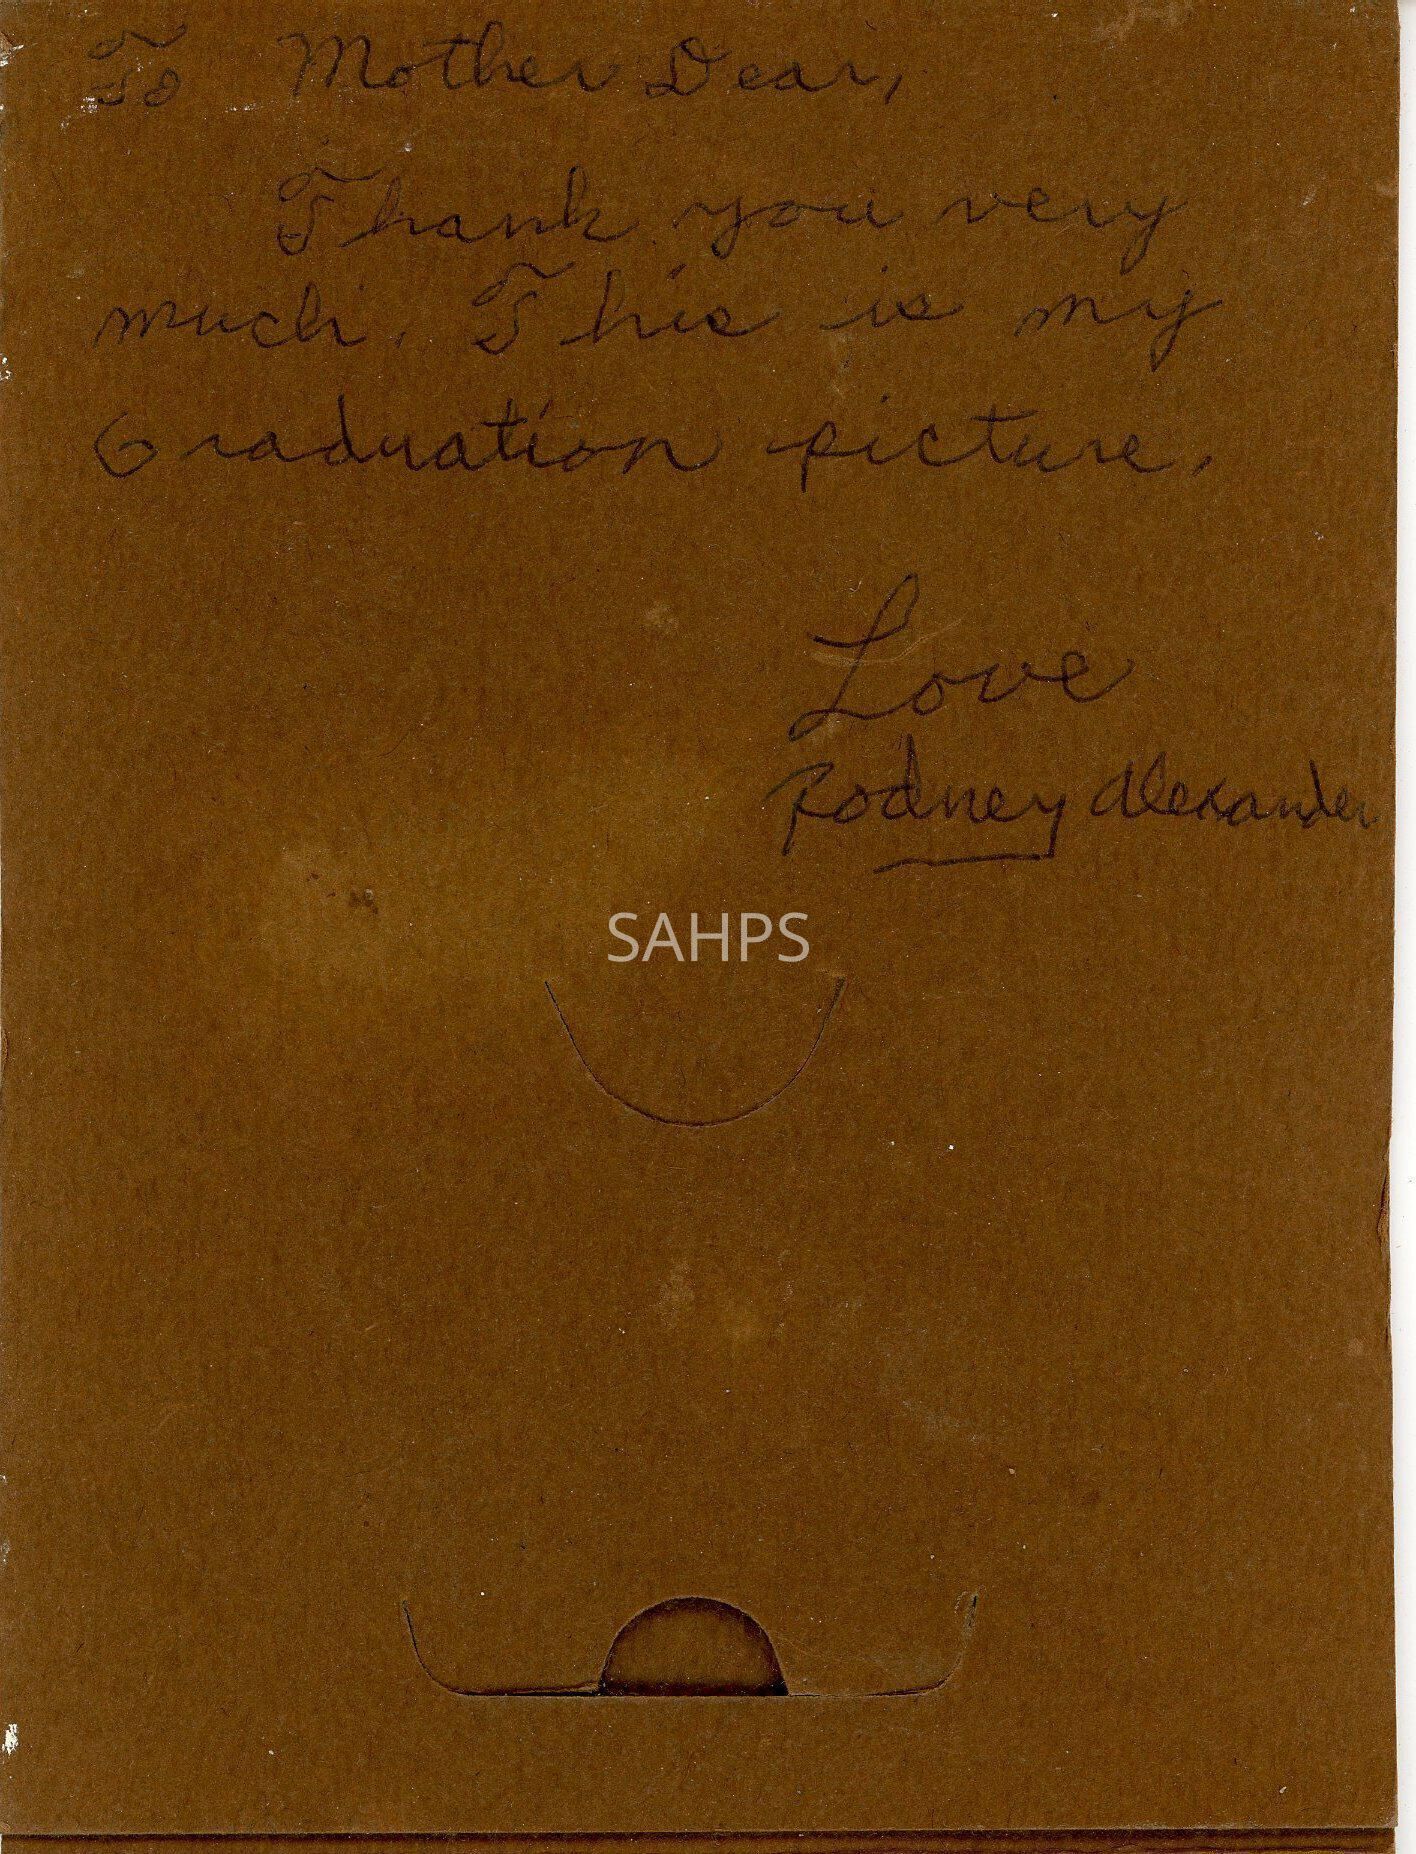 To Mother Dear,
Thank you very
much. This is my
Graduation picture.
Love
Rodney Alexander
SAHPS